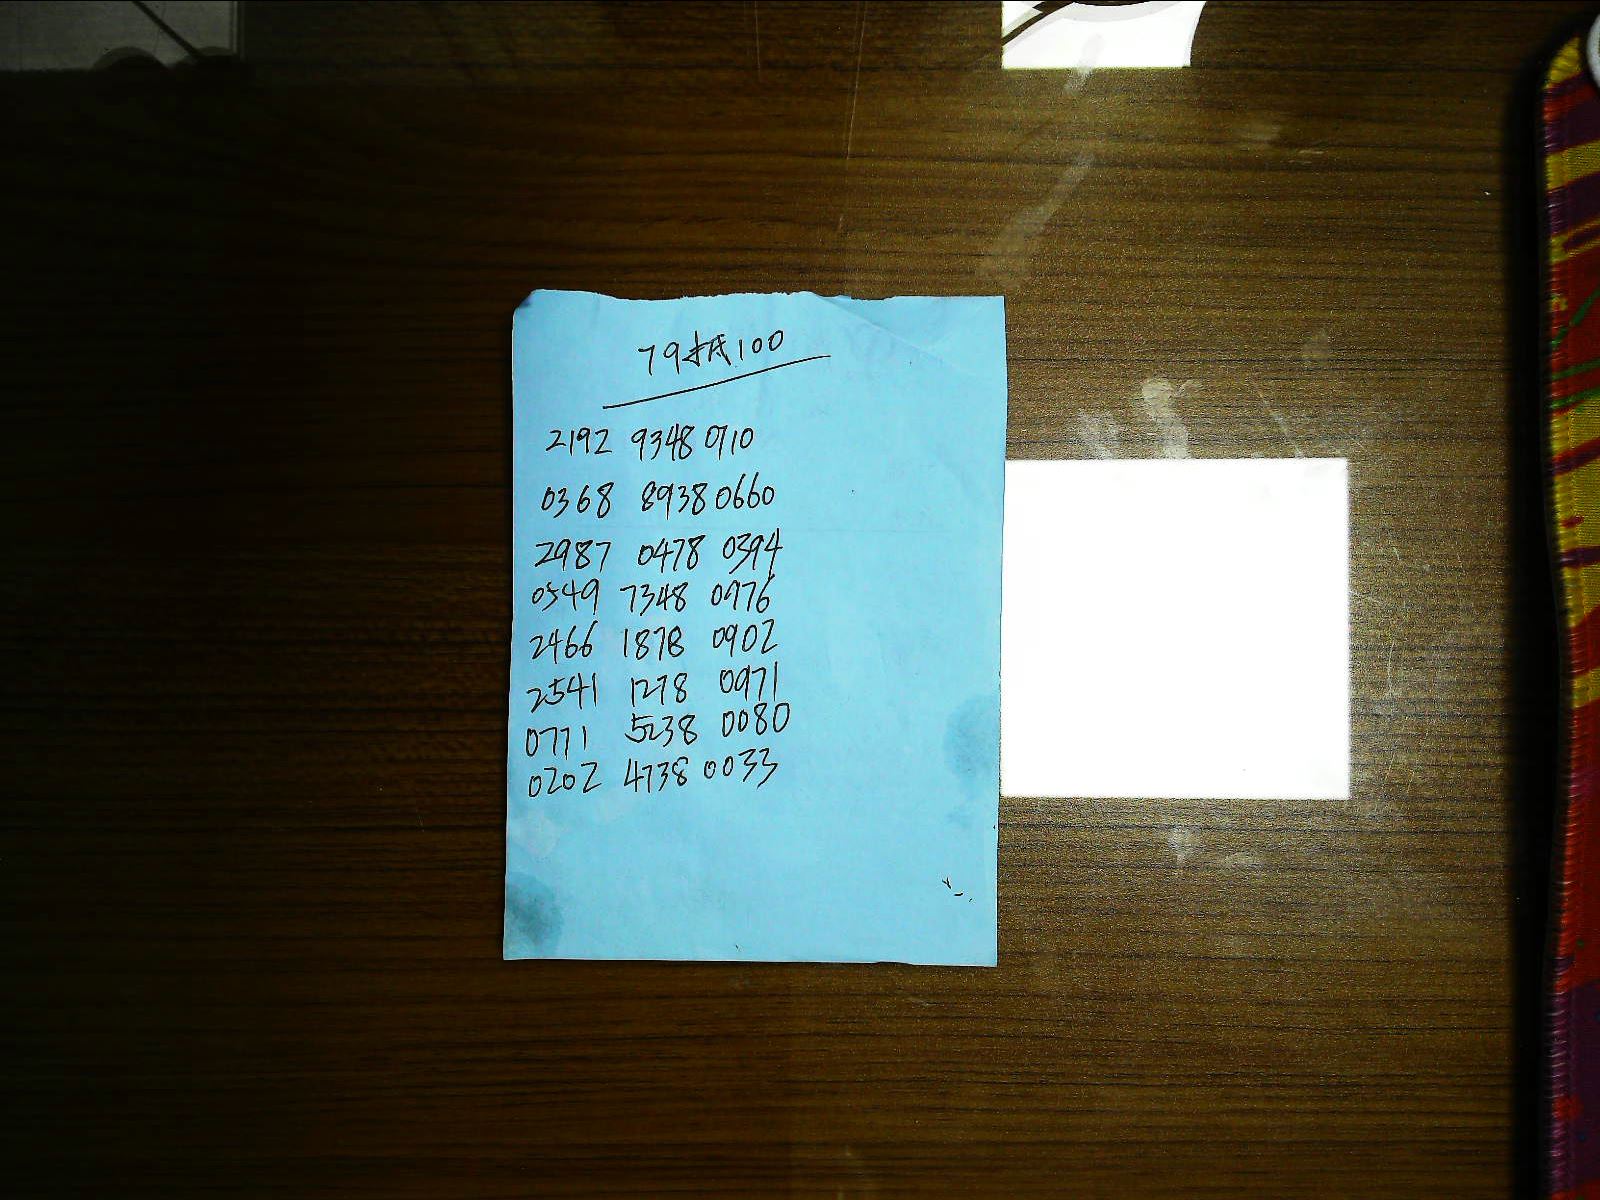 79抵100
2192 9348 0910
0368 8938 0660
2987 0478 0394
0549 7348 0976
2466 1878 0902
2541 1278 0971
0771 5238 0080
0202 4738 0033